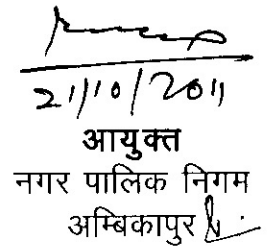 21/10/2011
आयुक्त
नगर पालिक निगम
अम्बिकापुर